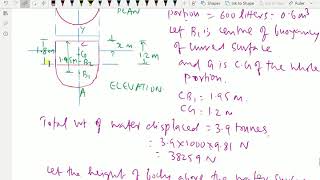 PLAN
portion = 600 liters = 0.6m³
Let B₁ is centre of buoyancy
of curved surface
and G is C.G of the whole
portion.
CB₁ = 1.95 m
CG = 1.2 m
Y
C
G
B₂
B₁
A
1.8m
1.95m
x m
1.2 m
ELEVATION
Total wt of water displaced = 3.9 tonnes.
= 3.9×1000×9.81 N
= 38259 N
Let the height of body above the water surface